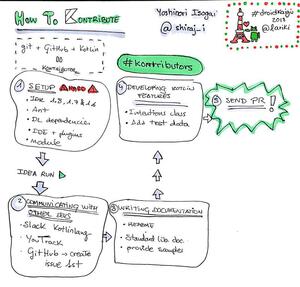 HOW TO KONTRIBUTE
Yoshinori Isogai
@shiraj_i
#droidkaigi
2018
@lariki
git + GitHub + Kotlin
#kontributors
1 SETUP
• JDK 1.6, 1.7, 1.8 & 9
• Ant
• DL dependencies
• IDE + plugins
module
IDEA RUN
2 COMMUNICATING WITH
OTHER DEVS
• Slack Kotlinlang
• YouTrack
• GitHub → create
issue 1st
3 WRITING DOCUMENTATION
• README
• Standard lib doc
• provide samples
4 DEVELOPING KOTLIN
FEATURES
• Intentions class
• Add test data
5 SEND PR!